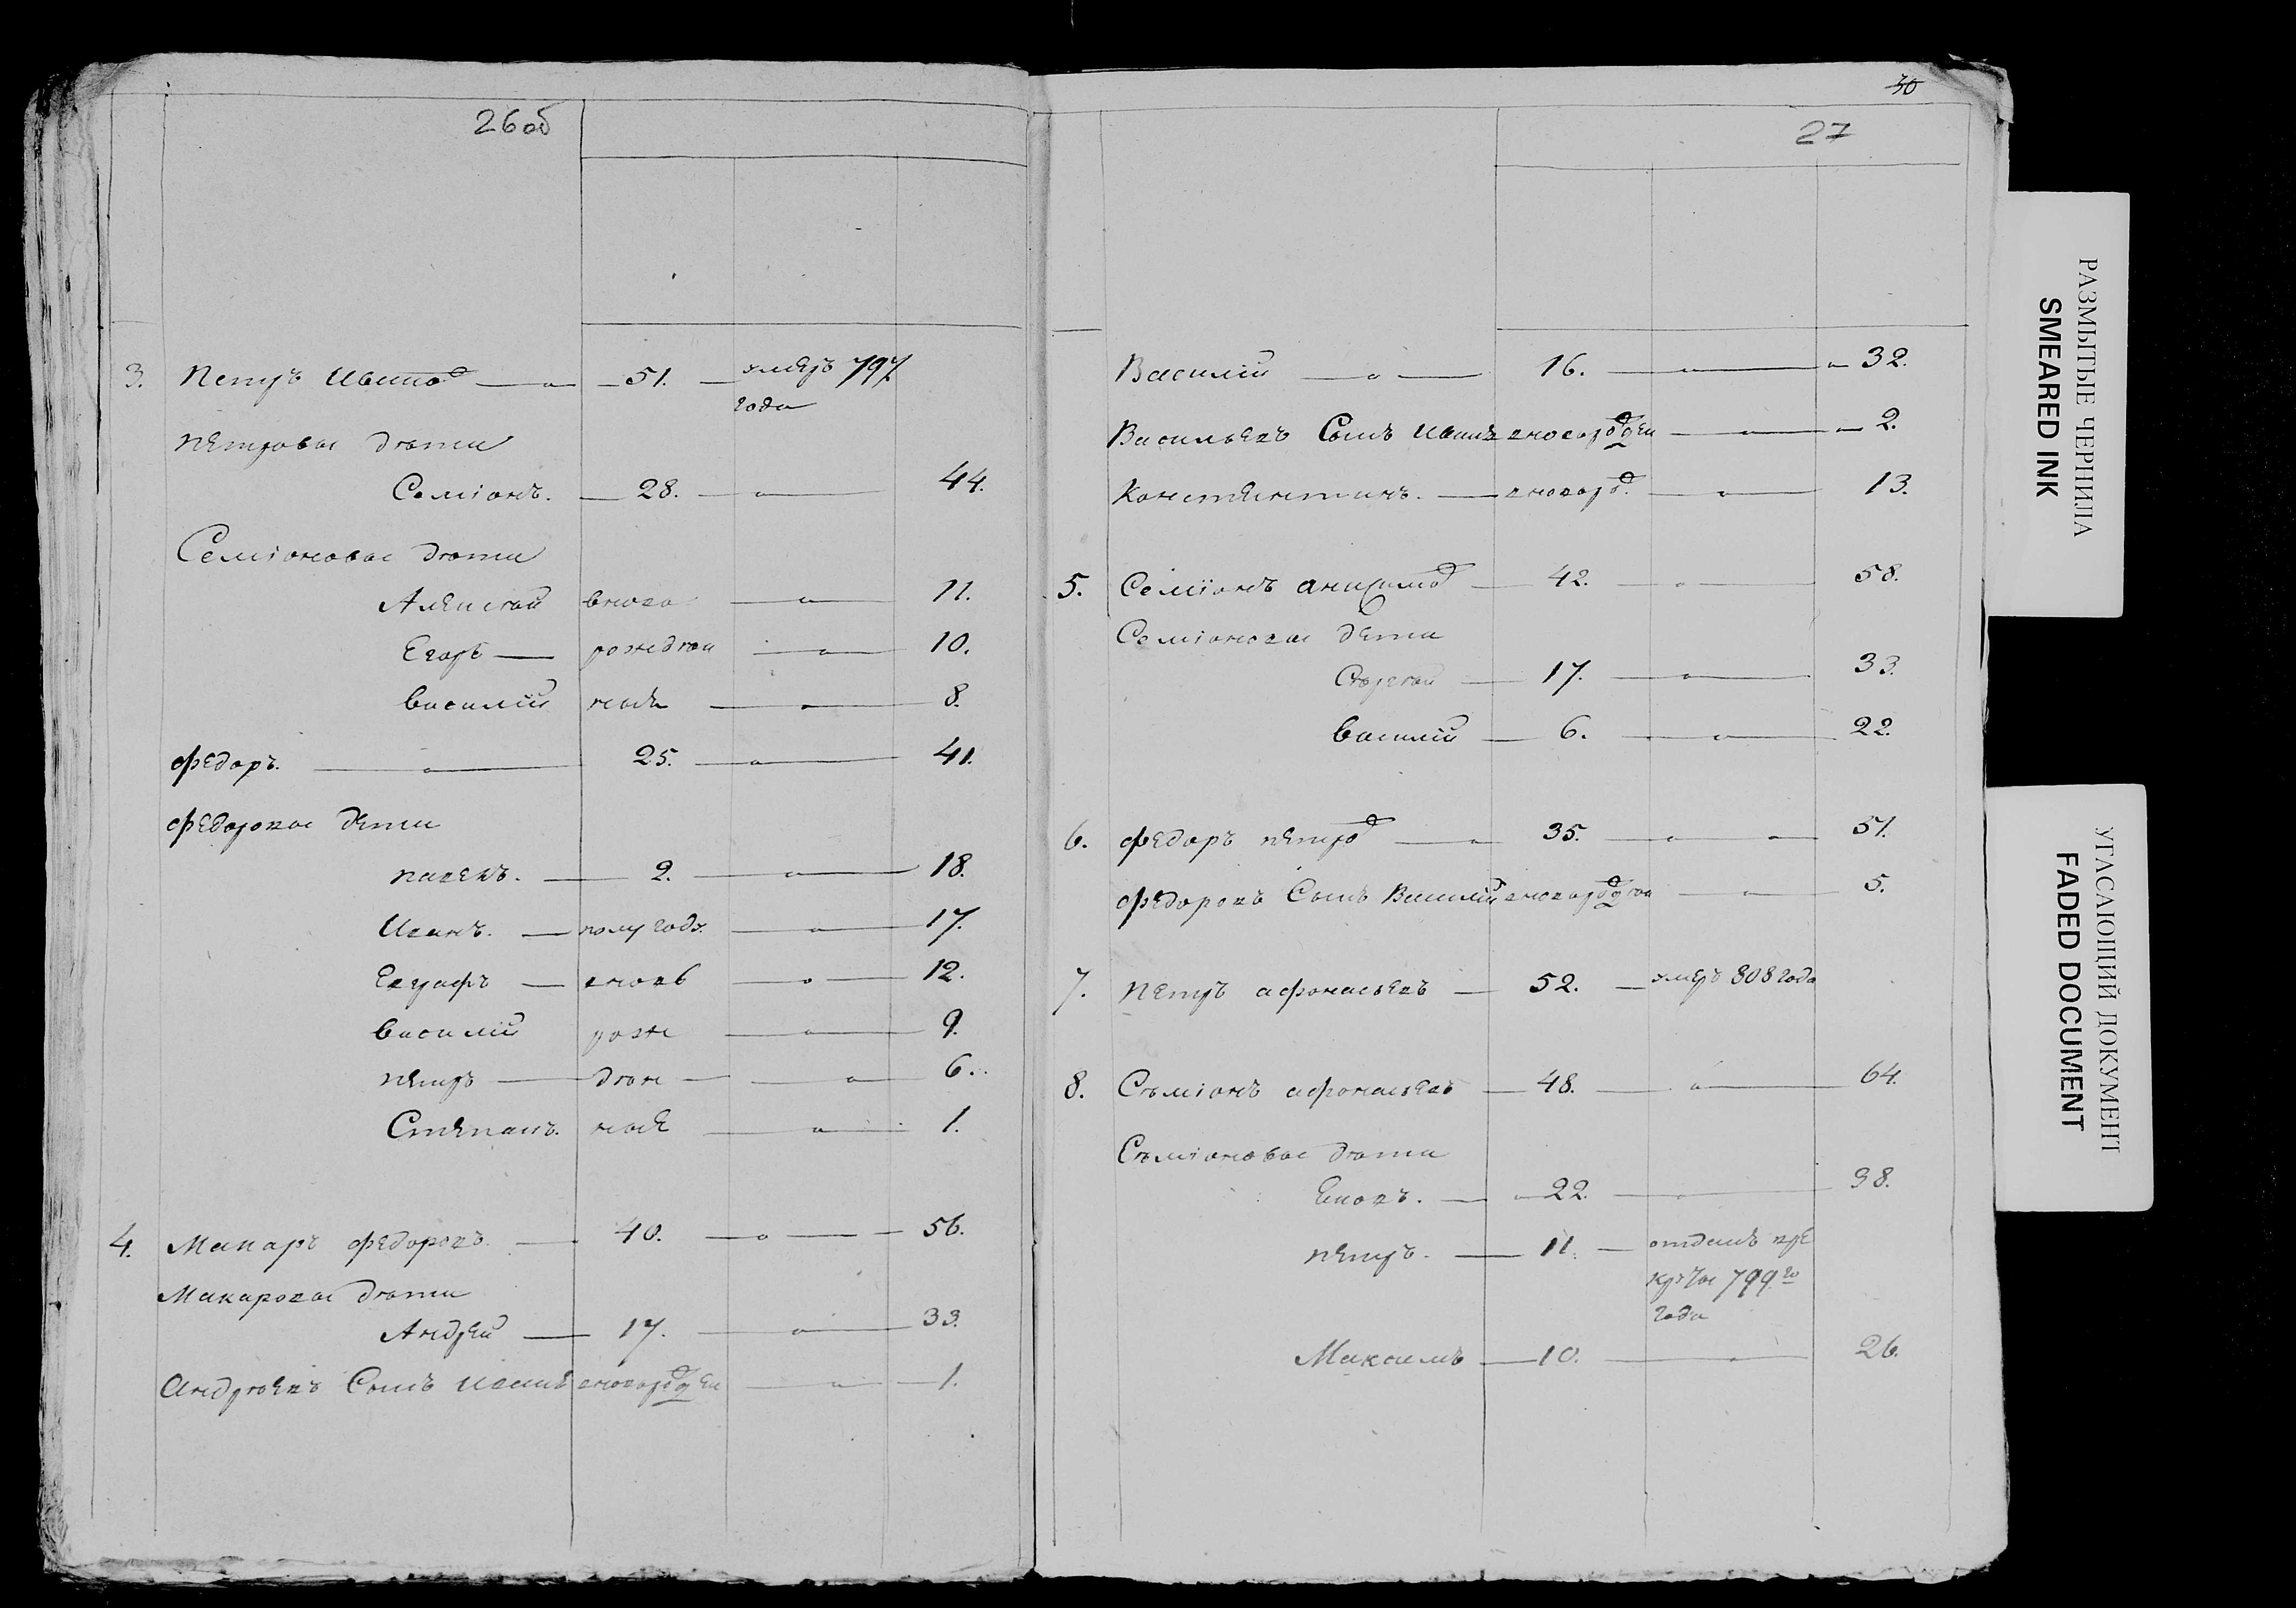 26об
3. Петръ Ивано͏в — 51. — умеръ 797
года
Петровы дѣти
Семіонъ. — 28. — 44.
Семіоновы дѣти
Алексѣй вново — 11.
Егоръ — рождѣн — 10.
Василій ныя — 8.
Федоръ. — 25. — 41.
Федоровы дети
Павелъ. — 2. — 18.
Иванъ. — полугоду. — 17.
Евграфъ — вновь — 12.
Василій рож — 9.
Петръ — дѣн — 6.
Степанъ. ные — 1.
4. Макаръ Федоровъ. — 40. — 56.
Макаровы дѣти
Андрей — 17. — 33.
Андрѣевъ Сынъ Иванъ вноворожден — 1.
30
27
Василій — 16. — 32.
Васильевъ Сынъ Иванъ вноворожден — 2.
Констентинъ. — вноворо. — 13.
5. Семіонъ Анисимо — 42. — 58.
Семіоновы дети
Сергѣй — 17. — 33.
Василій — 6. — 22.
6. Федоръ Петро — 35. — 51.
Федоровъ Сынъ Василій вноворождѣн — 5.
7. Петръ Афонасьевъ — 52. — умеръ 808 года
8. Съміонъ Афонасьевъ — 48. — 64.
Съміоновы дѣти
22. — 38.
Петръ. — 11. — отданъ вре
круты 799го
года
Максимъ — 10. — 26.
РАЗМЫТЫЕ ЧЕРНИЛА
SMEARED INK
УГАСАЮЩИЙ ДОКУМЕНТ
FADED DOCUMENT